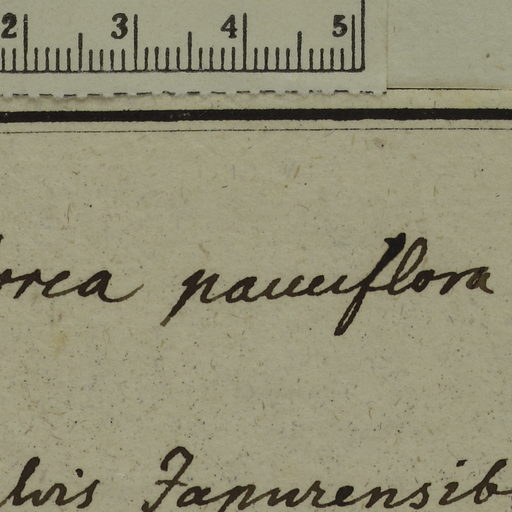 2 3 4 5
rrea pauciflora
lvis Japurensib